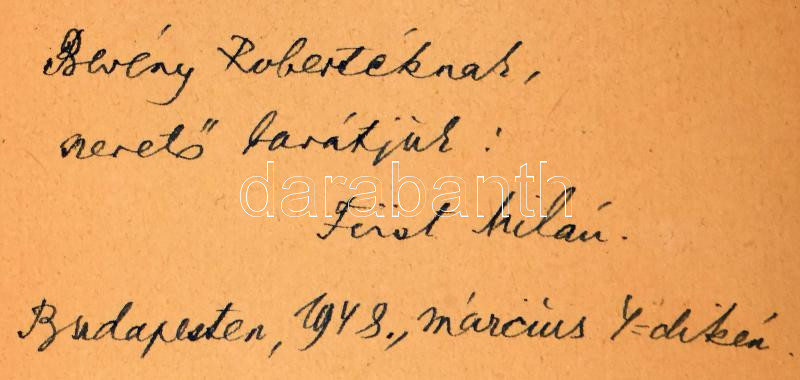 Berény Robertéknak,
szerető barátjuk:
darabanth
Füst Milán.
Budapesten, 1948., március 4-dikén.